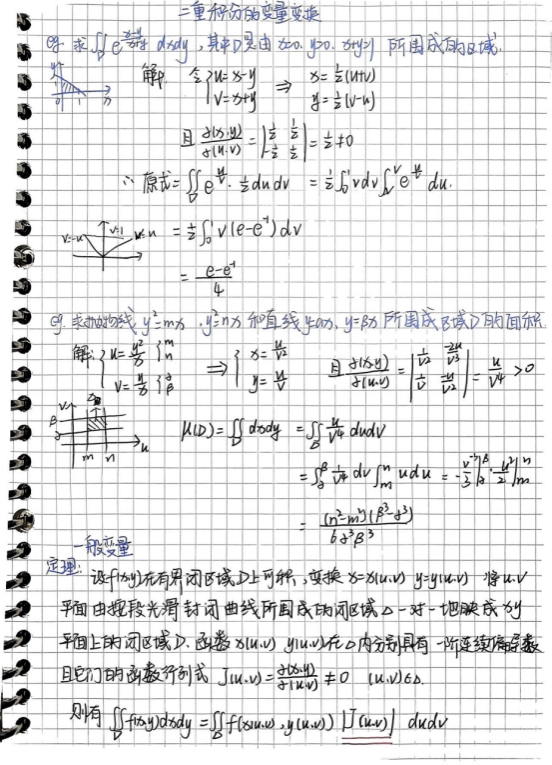 二重积分的变量变换
eg. 求∬_D e^{(x-y)/(x+y)} dxdy, 其中D是由 x=0. y=0. x+y=1 所围成的区域.
解: 令 { u=x-y  v=x+y ⇒ x=½(u+v)  y=½(v-u)
且 ∂(x,y)/∂(u,v) = |½ ½; -½ ½| = ½ ≠0
∴ 原式=∬ e^{u/v}·½ du dv = ½∫₀¹ v dv ∫ e^{u/v} du.
v=-u v=1 v=u = ½∫₀¹ v(e-e⁻¹) dv
= (e-e⁻¹)/4
eg. 求抛物线 y²=mx, y²=nx 和直线 y=αx, y=βx 所围成区域D的面积.
解: { u=y²/x {m n  v=y/x {α β ⇒ { x=u/v²  y=u/v 且 ∂(x,y)/∂(u,v) = |1/v² -2u/v³; 1/v -u/v²| = u/v⁴ >0
μ(D)=∬_D dxdy = ∬ u/v⁴ dudv
= ∫_α^β 1/v⁴ dv ∫_m^n u du = -v⁻³/3 |_α^β · u²/2 |_m^n
= (n²-m²)(β³-α³) / 6α³β³
一般变量
定理: 设f(x,y)在有界闭区域D上可积, 变换 x=x(u,v) y=y(u,v) 将u.v
平面由按段光滑封闭曲线所围成的闭区域Δ一对一地映成xy
平面上的闭区域D. 函数 x(u,v) y(u,v)在Δ内分别具有一阶连续偏导数
且它们的函数行列式 J(u,v)=∂(x,y)/∂(u,v) ≠ 0 (u,v)∈Δ.
则有 ∬_D f(x,y)dxdy = ∬ f(x(u,v), y(u,v)) |J(u,v)| dudv